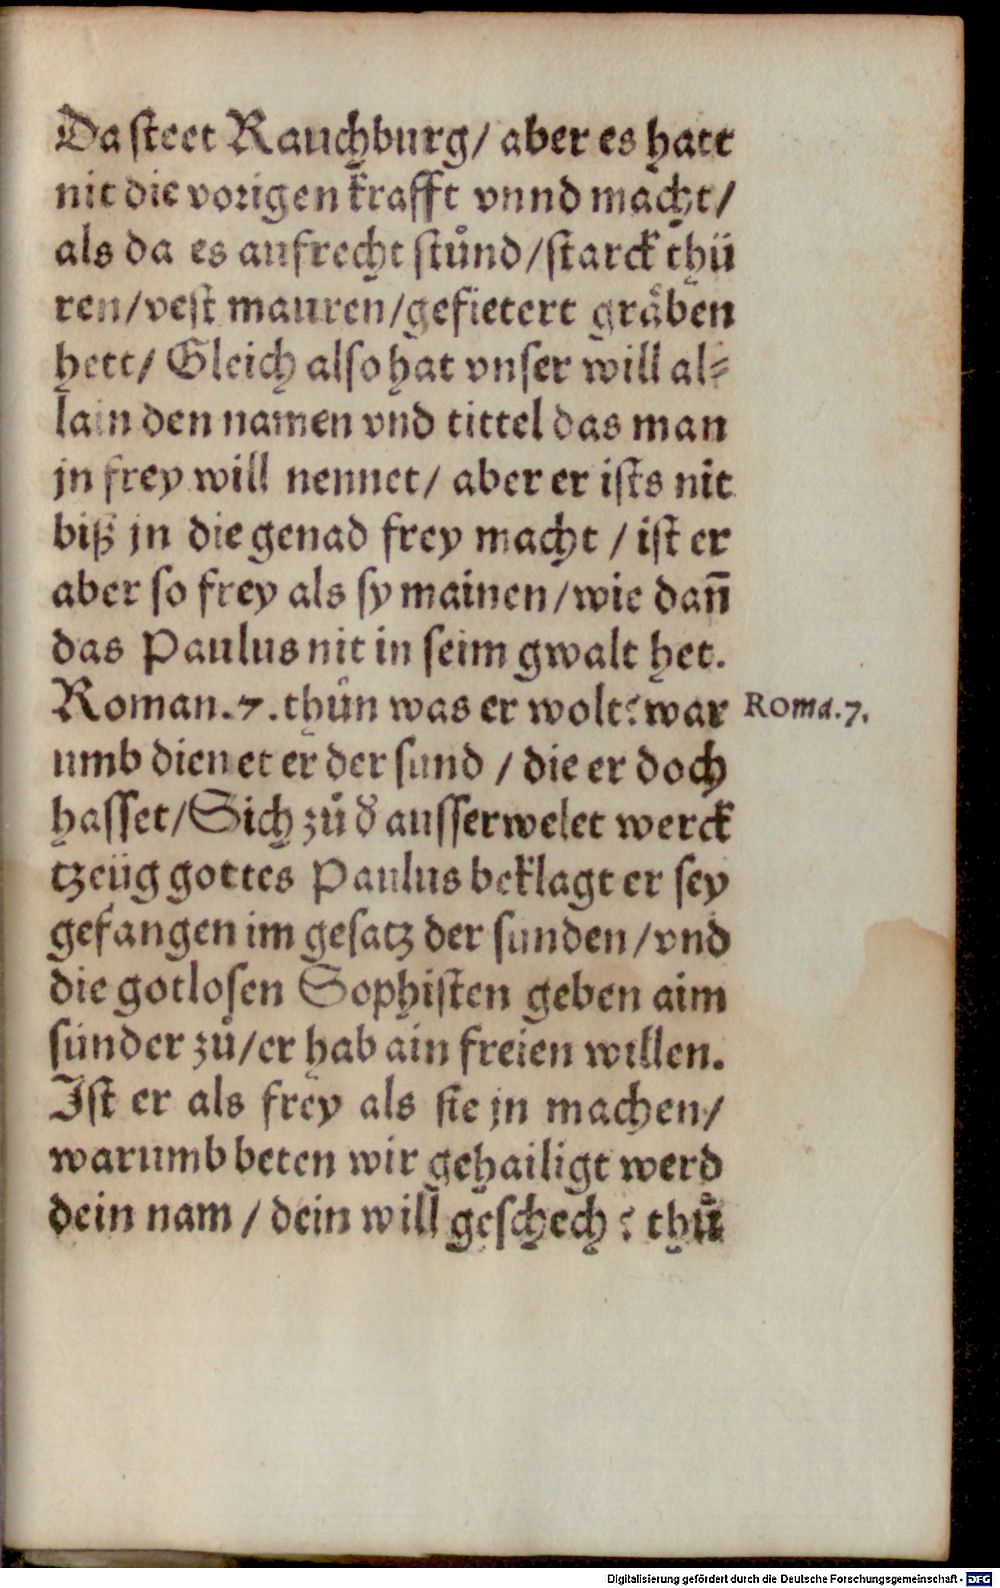 Da steet Rauchburg/ aber es hatt
nit die vorigen krafft vnnd macht/
als da es aufrecht stůnd/starck thü
ren/vest mauren/gefietert gråben
hett/ Gleich also hat vnser will al⸗
lain den namen vnd tittel das man
jn frey will nennet/ aber er ists nit
biß jn die genad frey macht / ist er
aber so frey als sy mainen/wie dañ
das Paulus nit in seim gwalt het.
Roman.7.thůn was er wolt? war
umb dienet er der sund / die er doch
hasset/Sich zů ď ausserwelet werck
tzeüg gottes Paulus beklagt er sey
gefangen im gesatz der sunden/vnd
die gotlosen Sophisten geben aim
sünder zů/er hab ain freien willen.
Ist er als frey als sie jn machen/
warumb beten wir gehailigt werd
dein nam / dein will geschech ? thů
Roma.7.
Digitalisierung gefördert durch die Deutsche Forschungsgemeinschaft - DFG